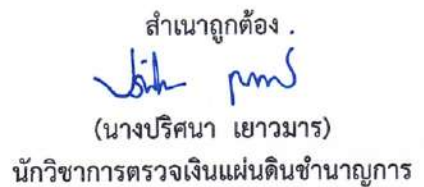 สำเนาถูกต้อง .
(นางปริศนา เยาวมาร)
นักวิชาการตรวจเงินแผ่นดินชำนาญการ